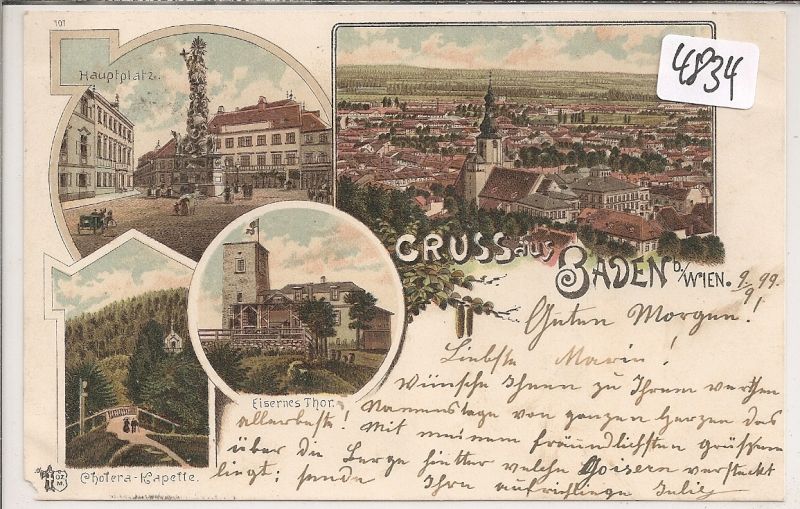 101
Hauptplatz.
4834
GRUSS aus BADEN b./WIEN.
9/9 99.
Guten Morgen!
Liebste Marin!
Wünsche Ihnen zu Ihrem werthen
Namenstage von ganzen Herzen das
allerbeste! Mit meinem fräundlichsten Grüßen
über die Berge hinter welche Goisern versteckt
liegt; sende Ihre aufrichtige Julie
Eisernes Thor.
Cholera-Kapelle.